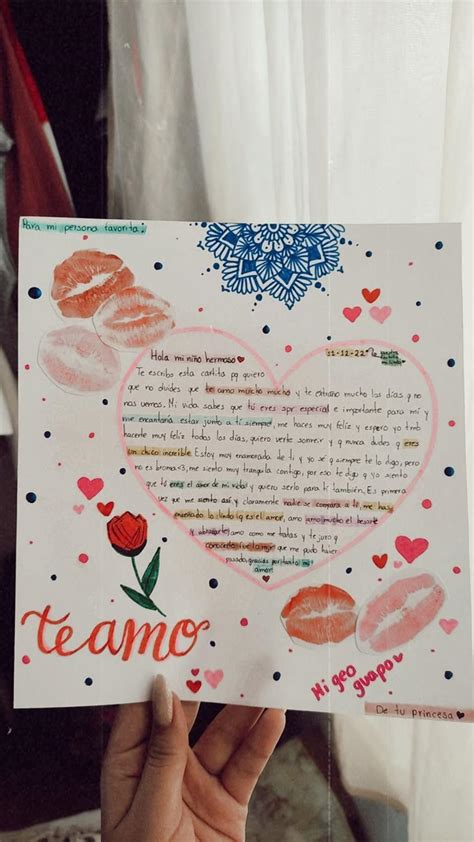 Para mi persona favorita:
Hola mi niño hermoso
11-12-22
Te escribo esta cartita pq quiero
que no dudes que te amo mucho mucho y te extraño mucho los días q no
nos vemos. Mi vida sabes que tú eres spr especial e importante para mí y
me encantaría estar junto a ti siempre, me haces muy feliz y espero yo tmb
hacerte muy feliz todos los días, quiero verte sonreír y q nunca dudes q eres
un chico increíble. Estoy muy enamorada de ti y yo sé q siempre te lo digo, pero
no es broma <3, me siento muy tranquila contigo, por eso te digo q yo siento
que tú eres el amor de mi vida y quiero serlo para ti también. Es primera
vez que me siento así y claramente nadie se compara a ti, me has
enseñado lo lindo q es el amor, amo mucho el besarte
y abrazarte, amo como me tratas y te juro q
conocerte fue lo mjr que me pudo haber
pasado, gracias por tanto mi
amor!
te amo
Mi geo
guapo
De tu princesa